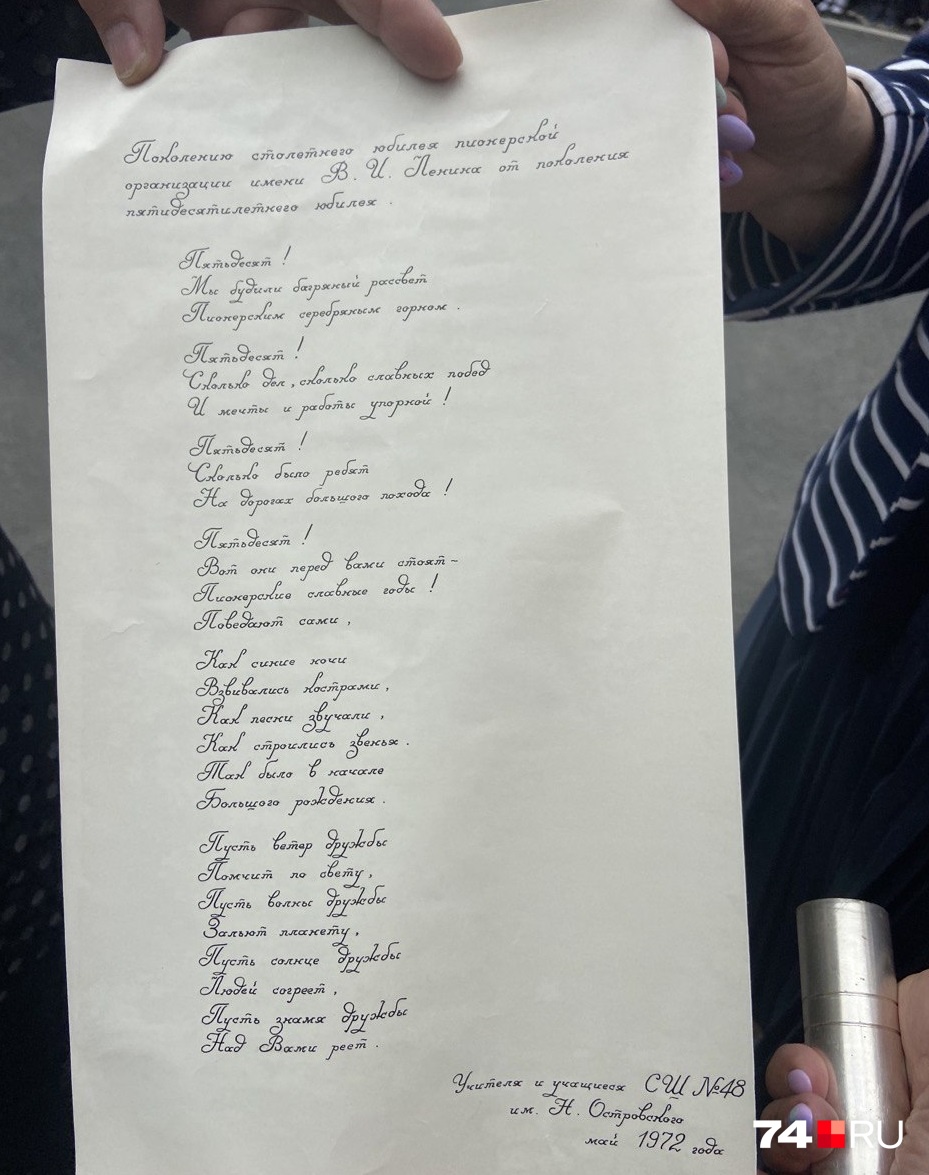 Поколению столетнего юбилея пионерской
организации имени В. И. Ленина от поколения
пятидесятилетнего юбилея .
Пятьдесят !
Мы будили багряный рассвет
Пионерским серебряным горном .
Пятьдесят !
Сколько дел , сколько славных побед
И мечты и работы упорной !
Пятьдесят !
Сколько было ребят
На дорогах большого похода !
Пятьдесят !
Вот они перед вами стоят -
Пионерские славные годы !
Поведают сами ,
Как синие ночи
Взвивались кострами ,
Как песни звучали ,
Как строились звенья .
Так было в начале
Большого рождения .
Пусть ветер дружбы
Помчит по свету ,
Пусть волны дружбы
Зальют планету ,
Пусть солнце дружбы
Людей согреет ,
Пусть знамя дружбы
Над Вами реет .
Учителя и учащиеся СШ №48
им. Н. Островского
май 1972 года
74 RU